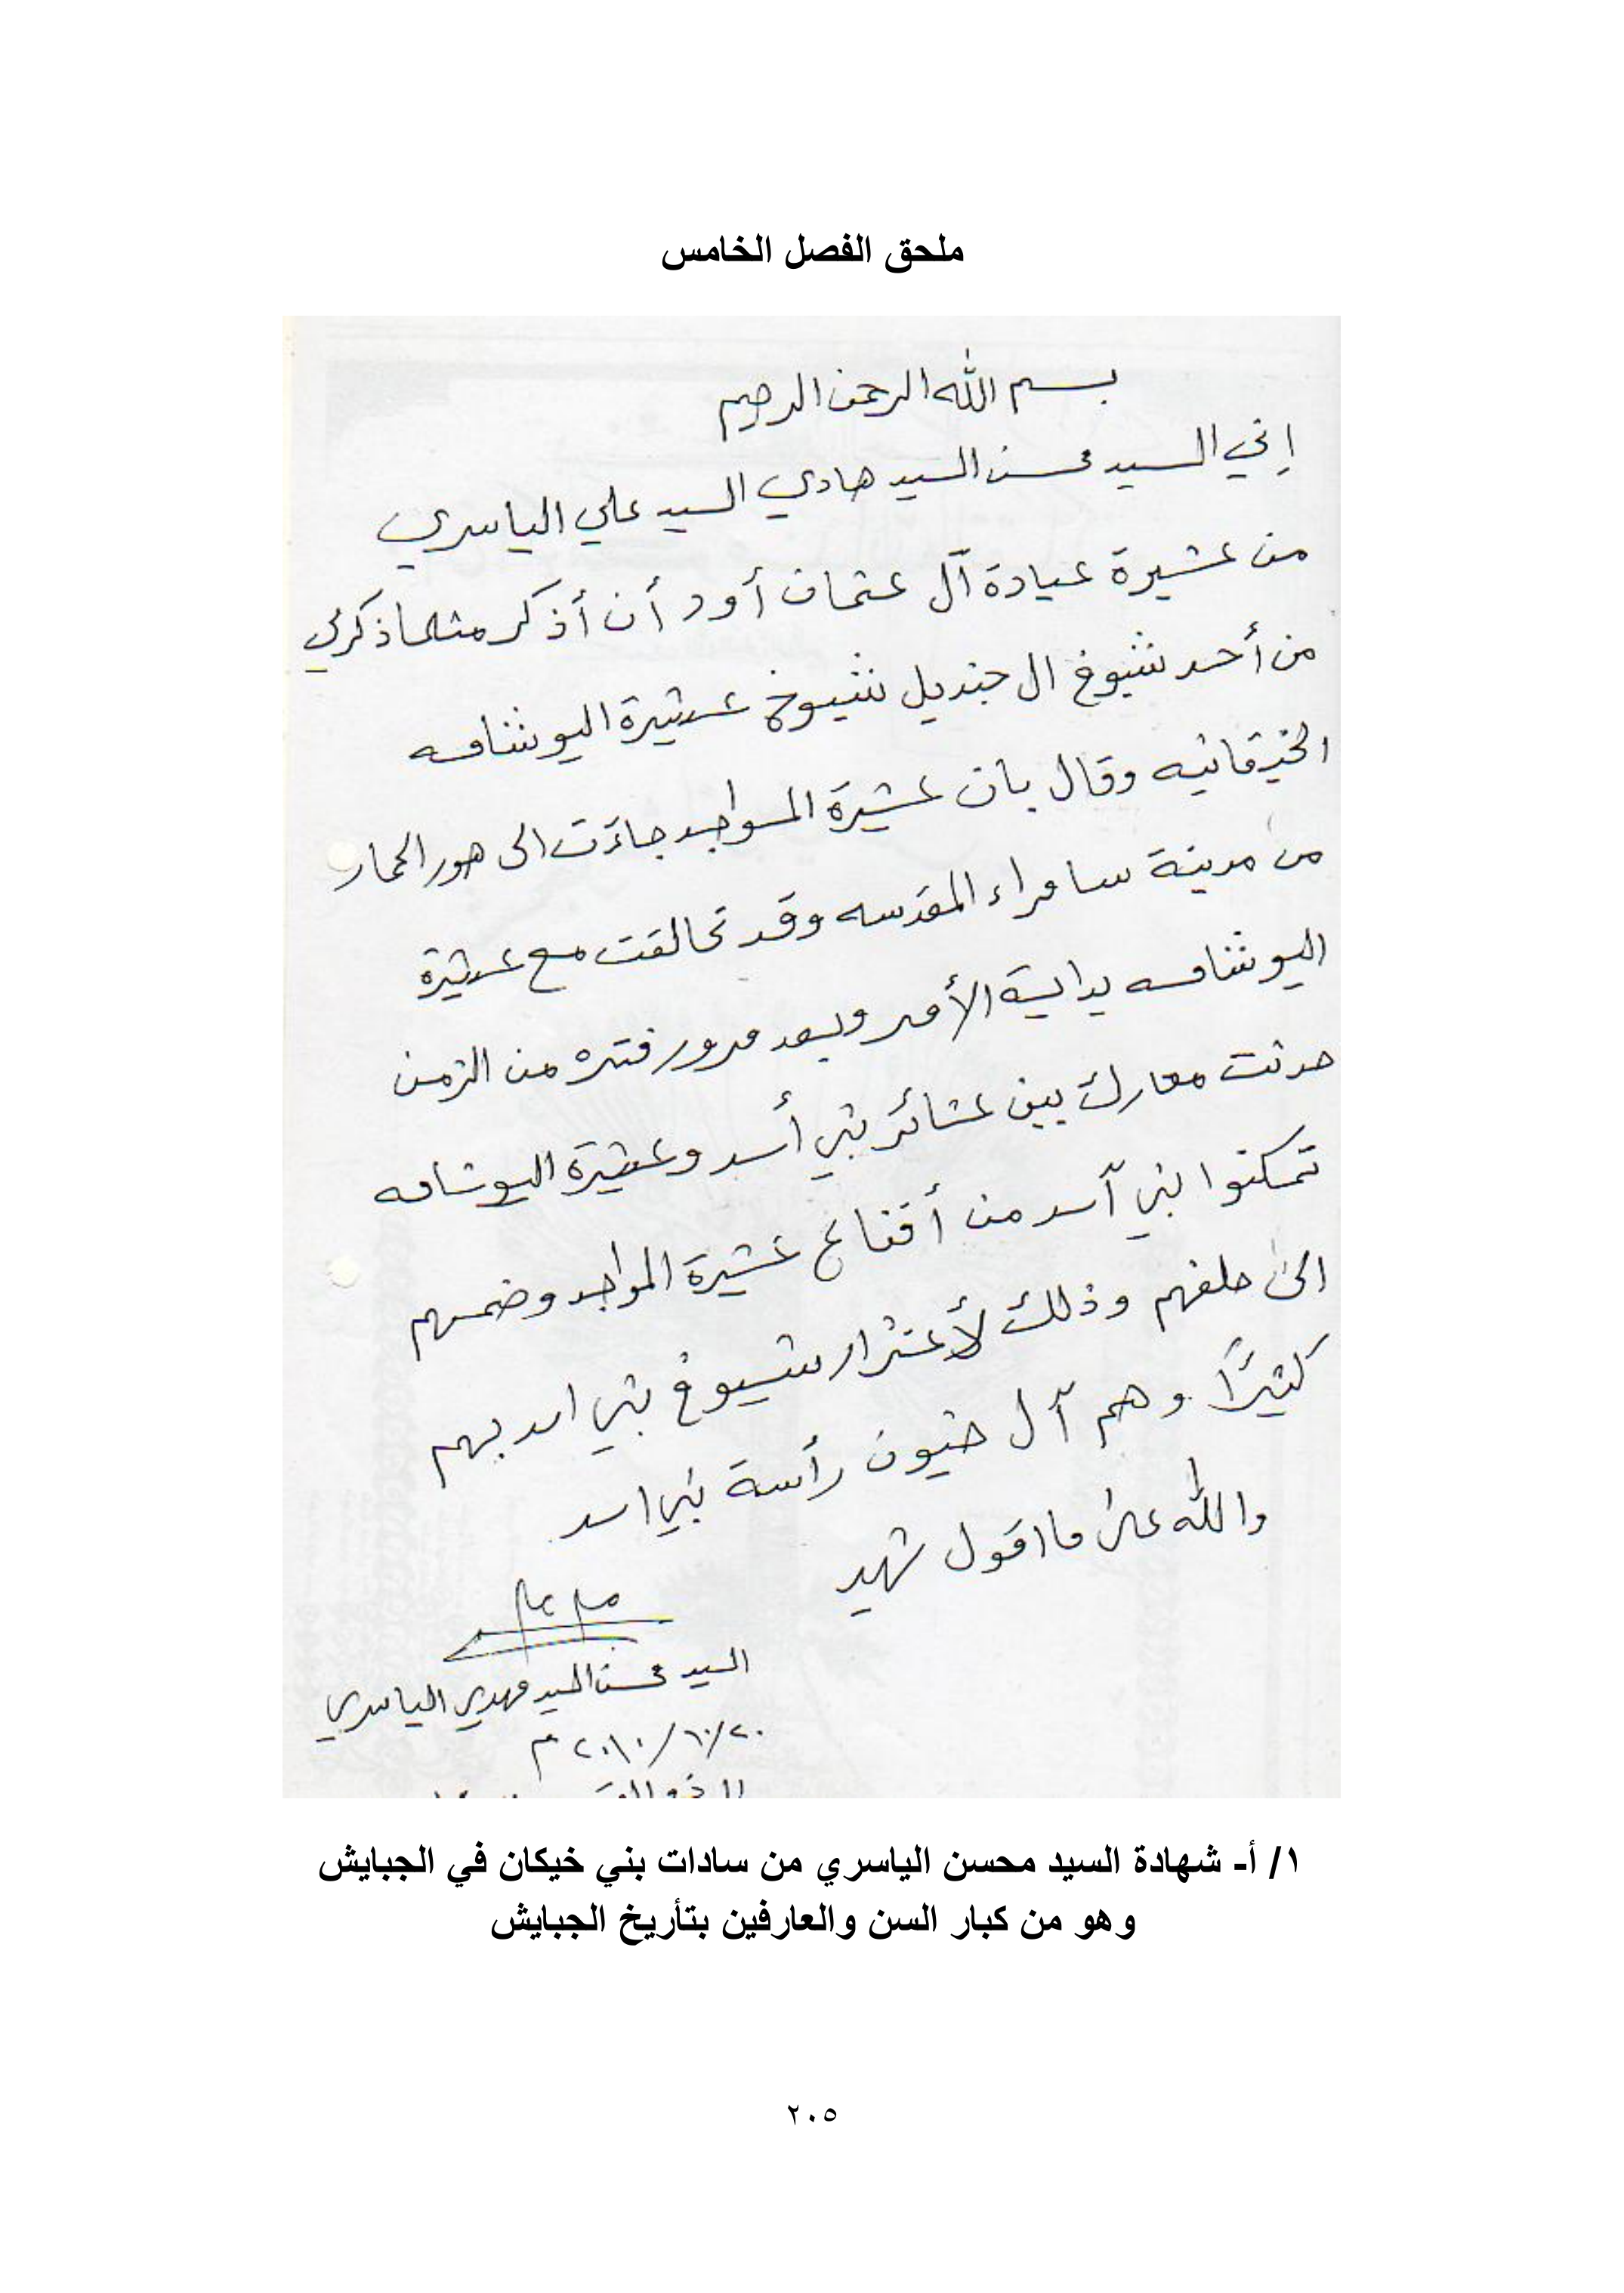 ملحق الفصل الخامس
بسم الله الرحمن الرحيم
إني السيد محسن السيد هادي السيد علي الياسري
من عشيرة عبادة آل عثمان أود أن أذكر مثلما ذكر لي
من أحد شيوخ ال جنديل شيوخ عشيرة البو شامه
الخيقانيه وقال بان عشيرة المواجد جاءت الى هور الحمار
من مدينة سامراء المقدسه وقد تحالفت مع عشيرة
البو شامه بداية الأمر وبعد مرور فتره من الزمن
حدثت معارك بين عشائر بني أسد وعشيرة البو شامه
تمكنوا بني آسد من أقناع عشيرة المواجد وضمهم
الى حلفهم وذلك لأعتزاز شيوخ بني اسد بهم
كثيرًا وهم آل خيون رأسة بني اسد
والله على ما اقول شهيد
السيد محسن السيد مهدي الياسري
٢٠/١٠/٢٠١٠ م
١/ أ- شهادة السيد محسن الياسري من سادات بني خيكان في الجبايش
وهو من كبار السن والعارفين بتأريخ الجبايش
٢٠٥